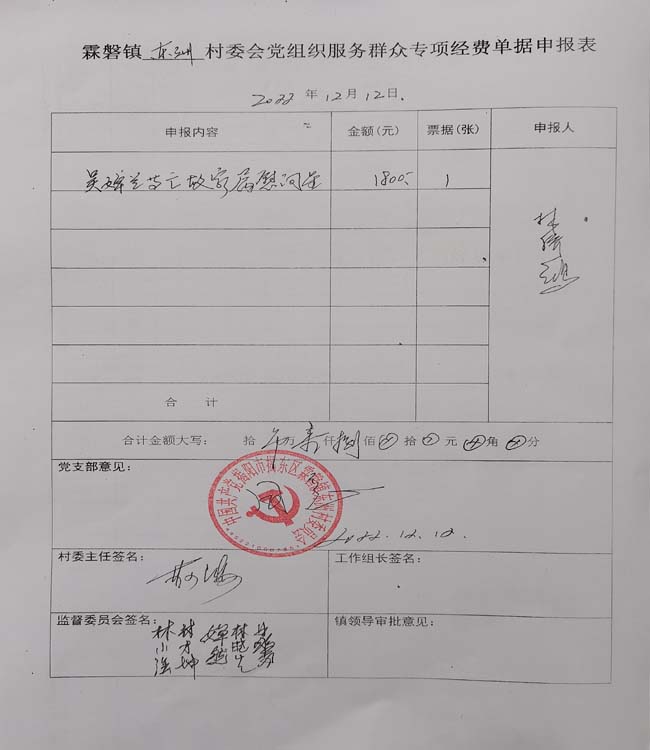 霖磐镇 东洲 村委会党组织服务群众专项经费单据申报表
2022 年 12 月 12 日.
申报内容 金额(元) 票据(张) 申报人
等亡故家属慰问金 1800 1
林
合 计
合计金额大写： 拾 万 壹仟捌佰 拾 元 角 分
党支部意见：
中国共产党揭阳市揭东区霖磐镇东洲村委员会
2022.12.12.
村委主任签名： 工作组长签名：
监督委员会签名： 镇领导审批意见：
林小 林才坤 林晓